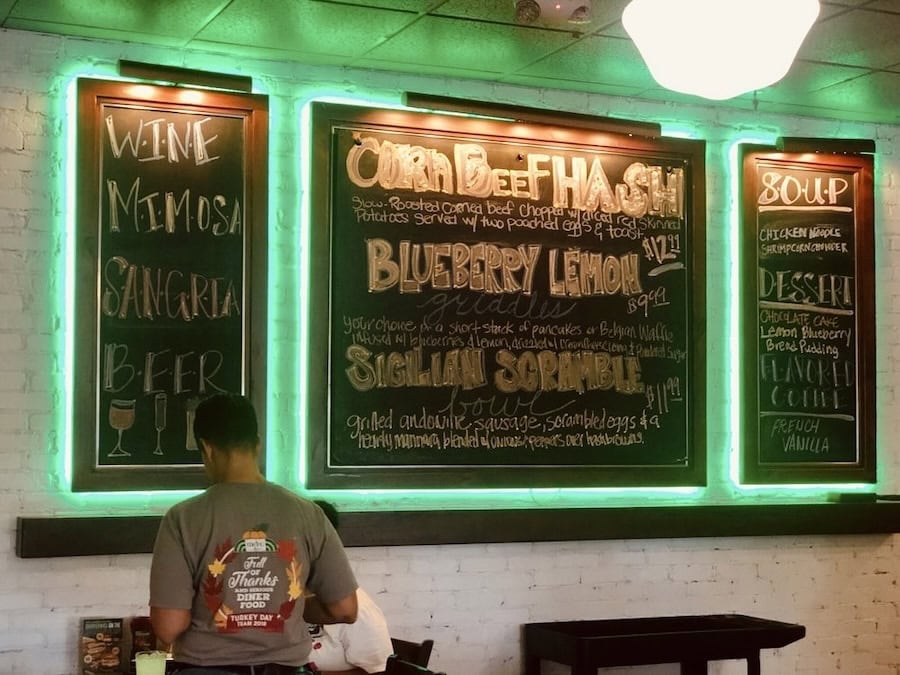 WINE
MIMOSA
SANGRIA
BEER
CORN BEEF HASH
Slow-Roasted corned beef chopped w/ diced red skinned
Potatoes served w/ two poached eggs & toast
$12.99
BLUEBERRY LEMON
griddles
$9.99
your choice of a short stack of pancakes or Belgian Waffle
infused w/ blueberries & lemon, drizzled w/ & Powdered Sugar
SICILIAN SCRAMBLE
bowl
$11.99
grilled andouille, sausage, scrambled eggs & a
blended w/ onions & peppers over hashbrowns.
SOUP
CHICKEN NOODLE
SHRIMP CORN CHOWDER
DESSERT
CHOCOLATE CAKE
Lemon Blueberry
Bread Pudding
FLAVORED
COFFEE
FRENCH
VANILLA
metro
Full
OF
Thanks
AND SERIOUS
DINER
FOOD
TURKEY DAY
TEAM 2018